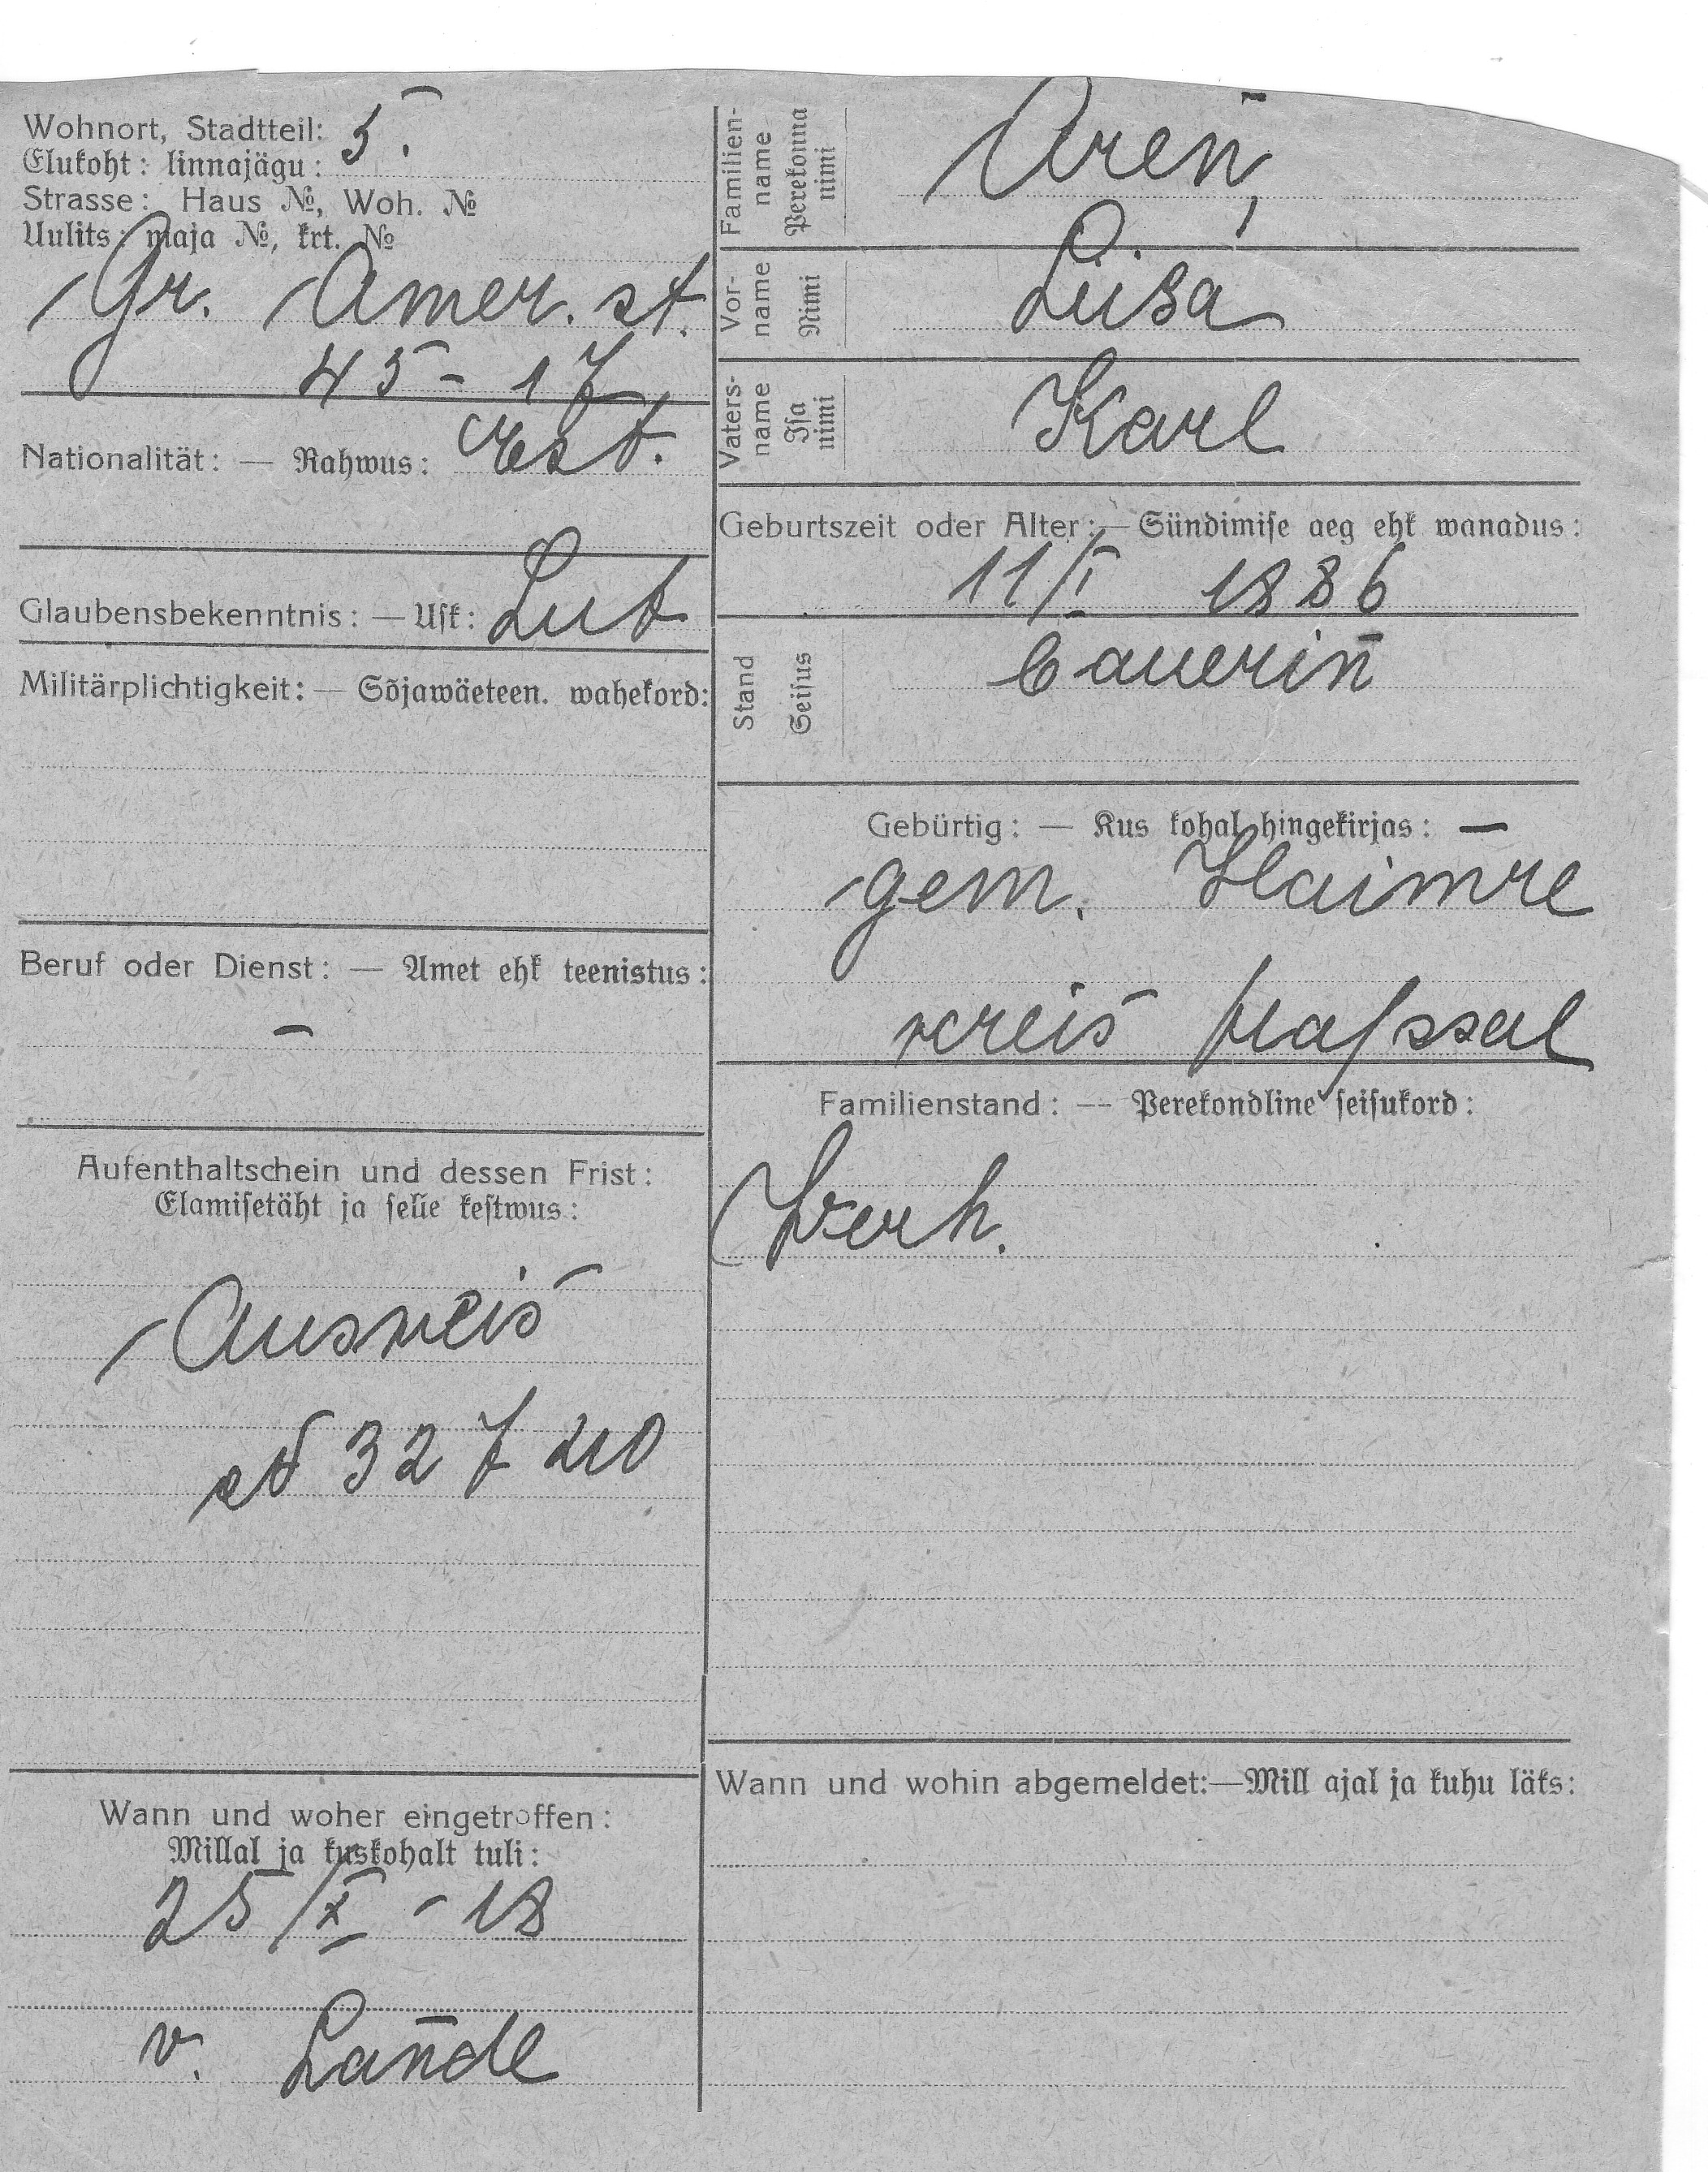 Wohnort, Stadtteil: 5.
Elukoht: linnajägu:
Strasse: Haus №, Woh. №
Uulits: maja №, krt. №
Gr. Amer. st.
45 - 17
Nationalität: — Rahwus: Est.
Glaubensbekenntnis: — Usk: Lut
Militärplichtigkeit: — Sõjawäeteen. wahekord:
Beruf oder Dienst: — Amet ehk teenistus:
—
Aufenthaltschein und dessen Frist:
Elamisetäht ja selle kestwus:
Ausweis
327210
Wann und woher eingetroffen:
Millal ja kuskohalt tuli:
25/X - 18
v. Lande
Familien-
name
Perekonna
nimi
Aren,
Vor-
name
Nimi
Liisa
Vaters-
name
Isa
nimi
Karl
Geburtszeit oder Alter: — Sündimise aeg ehk wanadus:
11/I 1886
Stand
Seisus
bauerin
Gebürtig: — Kus kohal hingekirjas: —
gem. Haimre
kreis Hapssal
Familienstand: — Perekondline seisukord:
Verh.
Wann und wohin abgemeldet:—Mill ajal ja kuhu läks: